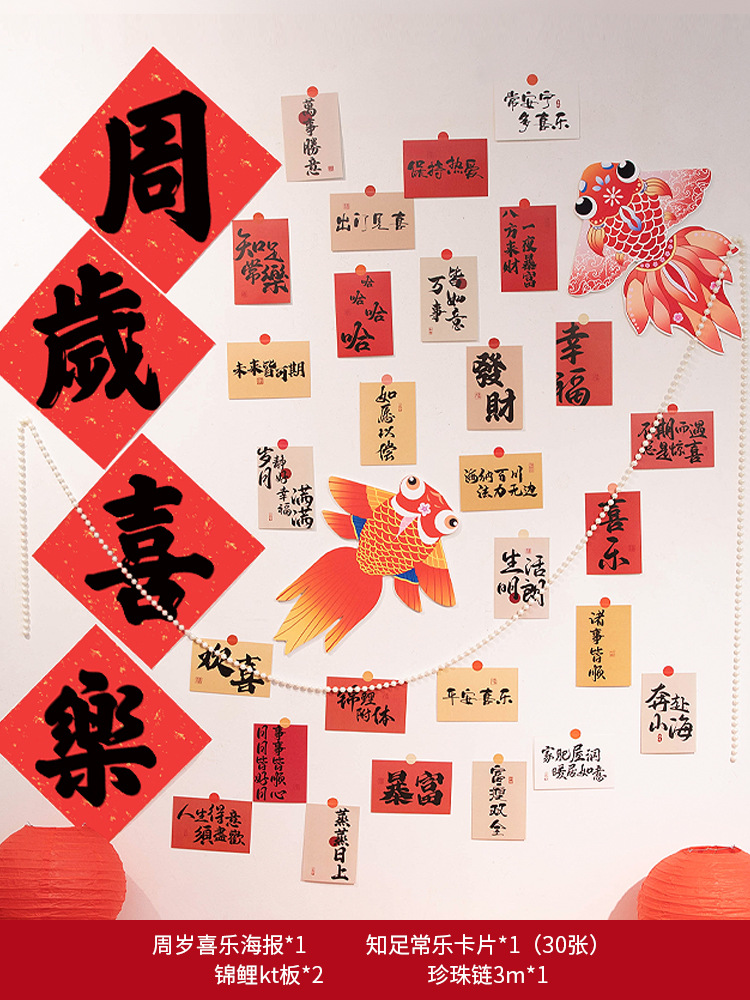 周
歲
喜
樂
萬事勝意
常安宁
多喜乐
保持热爱
出门见喜
八方来财
一夜暴富
知足
常樂
哈哈哈哈
皆如意
万事
未来皆可期
發財
幸福
如愿以偿
不期而遇
总是惊喜
岁月静好
幸福满满
海纳百川
法力无边
喜乐
生活
明朗
诸事皆顺
欢喜
锦鲤
附体
平安喜乐
奔赴
山海
事事皆顺心
日日皆好日
家肥屋润
暖居如意
暴富
富贵双全
人生得意
須盡歡
蒸蒸日上
周岁喜乐海报*1 知足常乐卡片*1（30张）
锦鲤kt板*2 珍珠链3m*1